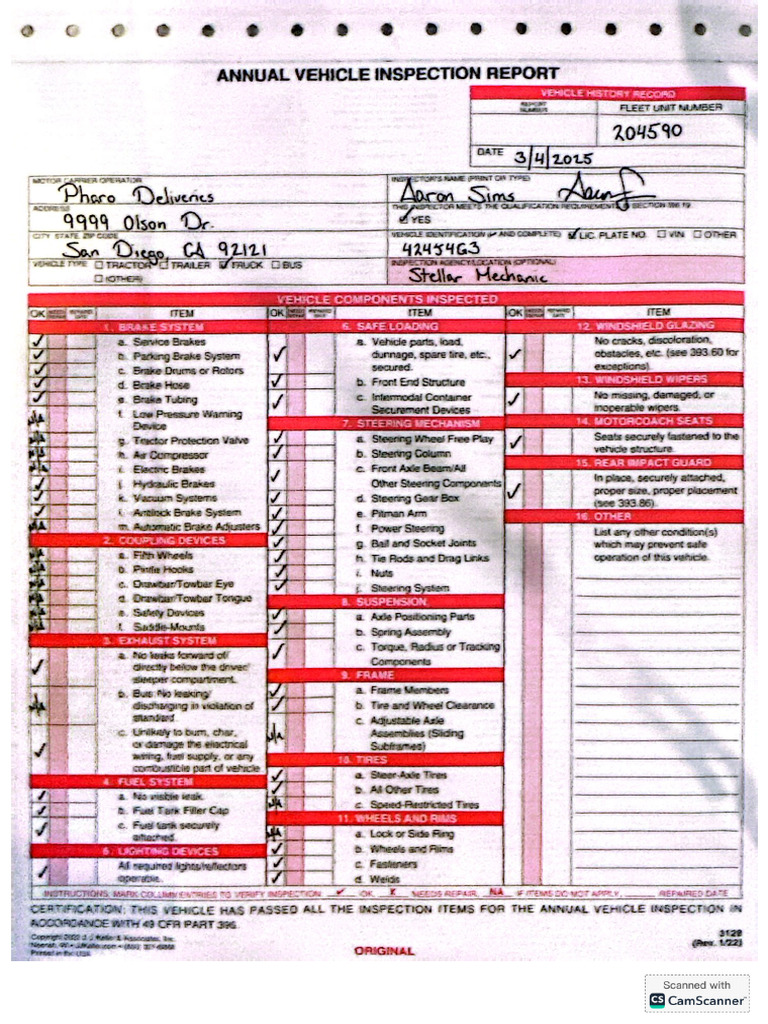 ANNUAL VEHICLE INSPECTION REPORT
VEHICLE HISTORY RECORD
REPORT NUMBER
FLEET UNIT NUMBER
204590
DATE 3/4/2025
MOTOR CARRIER OPERATOR
Pharo Deliveries
ADDRESS
9999 Olson Dr.
CITY, STATE, ZIP CODE
San Diego, CA 92121
VEHICLE TYPE ☐ TRACTOR ☐ TRAILER ☑ TRUCK ☐ BUS
☐ (OTHER)
INSPECTOR'S NAME (PRINT OR TYPE)
Aaron Sims
THIS INSPECTOR MEETS THE QUALIFICATION REQUIREMENTS SECTION 396.19
☑ YES
VEHICLE IDENTIFICATION (✓ AND COMPLETE) ☑ LIC. PLATE NO. ☐ VIN ☐ OTHER
42454G3
INSPECTION AGENCY/LOCATION (OPTIONAL)
Stellar Mechanic
VEHICLE COMPONENTS INSPECTED
OK NEEDS REPAIR REPAIRED DATE ITEM
1. BRAKE SYSTEM
✓ a. Service Brakes
✓ b. Parking Brake System
✓ c. Brake Drums or Rotors
✓ d. Brake Hose
✓ e. Brake Tubing
N/A f. Low Pressure Warning
Device
N/A g. Tractor Protection Valve
N/A h. Air Compressor
N/A i. Electric Brakes
✓ j. Hydraulic Brakes
✓ k. Vacuum Systems
✓ l. Antilock Brake System
N/A m. Automatic Brake Adjusters
2. COUPLING DEVICES
N/A a. Fifth Wheels
N/A b. Pintle Hooks
N/A c. Drawbar/Towbar Eye
N/A d. Drawbar/Towbar Tongue
N/A e. Safety Devices
N/A f. Saddle-Mounts
3. EXHAUST SYSTEM
✓ a. No leaks forward of/
directly below the driver/
sleeper compartment.
N/A b. Bus: No leaking/
discharging in violation of
standard.
✓ c. Unlikely to burn, char,
or damage the electrical
wiring, fuel supply, or any
combustible part of vehicle
4. FUEL SYSTEM
✓ a. No visible leak.
✓ b. Fuel Tank Filler Cap
✓ c. Fuel tank securely
attached.
5. LIGHTING DEVICES
✓ All required lights/reflectors
operable.
OK NEEDS REPAIR REPAIRED DATE ITEM
6. SAFE LOADING
✓ a. Vehicle parts, load,
dunnage, spare tire, etc.,
secured.
✓ b. Front End Structure
✓ c. Intermodal Container
Securement Devices
7. STEERING MECHANISM
✓ a. Steering Wheel Free Play
✓ b. Steering Column
✓ c. Front Axle Beam/All
Other Steering Components
✓ d. Steering Gear Box
✓ e. Pitman Arm
✓ f. Power Steering
✓ g. Ball and Socket Joints
✓ h. Tie Rods and Drag Links
✓ i. Nuts
✓ j. Steering System
8. SUSPENSION
✓ a. Axle Positioning Parts
✓ b. Spring Assembly
✓ c. Torque, Radius or Tracking
Components
9. FRAME
✓ a. Frame Members
✓ b. Tire and Wheel Clearance
N/A c. Adjustable Axle
Assemblies (Sliding
Subframes)
10. TIRES
✓ a. Steer-Axle Tires
✓ b. All Other Tires
N/A c. Speed-Restricted Tires
11. WHEELS AND RIMS
N/A a. Lock or Side Ring
✓ b. Wheels and Rims
✓ c. Fasteners
✓ d. Welds
OK NEEDS REPAIR REPAIRED DATE ITEM
12. WINDSHIELD GLAZING
✓ No cracks, discoloration,
obstacles, etc. (see 393.60 for
exceptions).
13. WINDSHIELD WIPERS
✓ No missing, damaged, or
inoperable wipers.
14. MOTORCOACH SEATS
✓ Seats securely fastened to the
vehicle structure.
15. REAR IMPACT GUARD
✓ In place, securely attached,
proper size, proper placement
(see 393.86).
16. OTHER
List any other condition(s)
which may prevent safe
operation of this vehicle.
INSTRUCTIONS: MARK COLUMN ENTRIES TO VERIFY INSPECTION ✓ OK, X NEEDS REPAIR, NA IF ITEMS DO NOT APPLY, REPAIRED DATE
CERTIFICATION: THIS VEHICLE HAS PASSED ALL THE INSPECTION ITEMS FOR THE ANNUAL VEHICLE INSPECTION IN
ACCORDANCE WITH 49 CFR PART 396.
Copyright 2022 J. J. Keller & Associates, Inc.
Neenah, WI • JJKeller.com
Printed in the USA
ORIGINAL
3128
(Rev. 1/22)
Scanned with
CS CamScanner